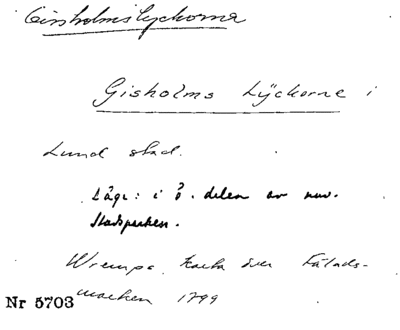 Gisholmslyckorna
Gisholms Lÿckorne i
Lund stad.
Läge: i ö. delen av nuv.
Stadsparken.
Wremps karta över Fälads-
marken 1799
Nr 5703